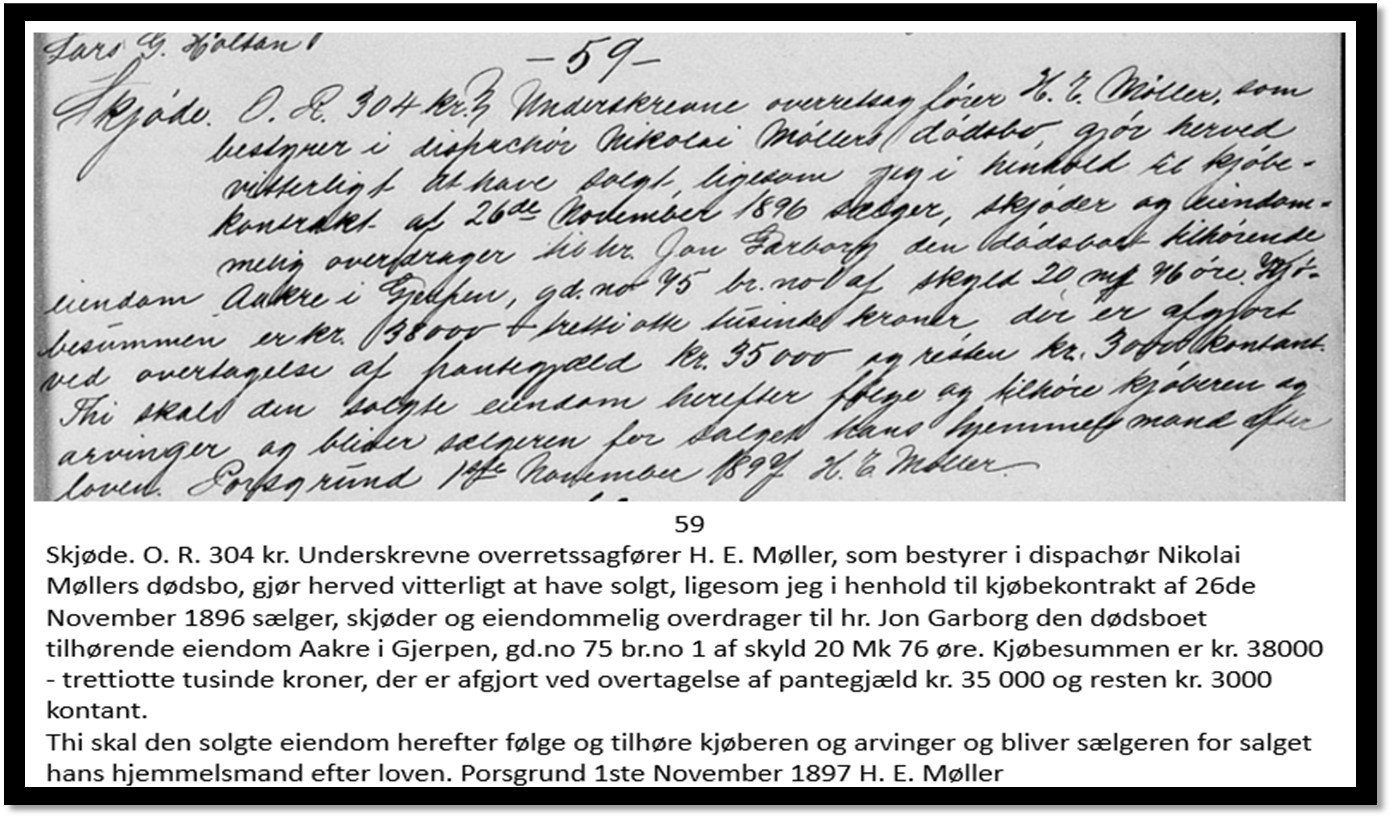 Lars G. Holtan
-59-
Skjøde. O. R. 304 kr. Underskrevne overretssagfører H. E. Møller, som
bestyrer i dispachør Nikolai Møllers dødsbo, gjør herved
vitterligt at have solgt, ligesom jeg i henhold til kjøbe-
kontrakt af 26de November 1896 sælger, skjøder og eiendom-
melig overdrager til hr. Jon Garborg den dødsboet tilhørende
eiendom Aakre i Gjerpen, gd.no 75 br.no 1 af skyld 20 mk 76 øre. Kjø-
besummen er kr. 38000 - trettiotte tusinde kroner, der er afgjort
ved overtagelse af pantegjæld kr. 35000 og resten kr. 3000 kontant.
Thi skal den solgte eiendom herefter følge og tilhøre kjøberen og
arvinger og bliver sælgeren for salget hans hjemmelsmand efter
loven. Porsgrund 1ste November 1897 H. E. Møller
59
Skjøde. O. R. 304 kr. Underskrevne overretssagfører H. E. Møller, som bestyrer i dispachør Nikolai
Møllers dødsbo, gjør herved vitterligt at have solgt, ligesom jeg i henhold til kjøbekontrakt af 26de
November 1896 sælger, skjøder og eiendommelig overdrager til hr. Jon Garborg den dødsboet
tilhørende eiendom Aakre i Gjerpen, gd.no 75 br.no 1 af skyld 20 Mk 76 øre. Kjøbesummen er kr. 38000
- trettiotte tusinde kroner, der er afgjort ved overtagelse af pantegjæld kr. 35 000 og resten kr. 3000
kontant.
Thi skal den solgte eiendom herefter følge og tilhøre kjøberen og arvinger og bliver sælgeren for salget
hans hjemmelsmand efter loven. Porsgrund 1ste November 1897 H. E. Møller